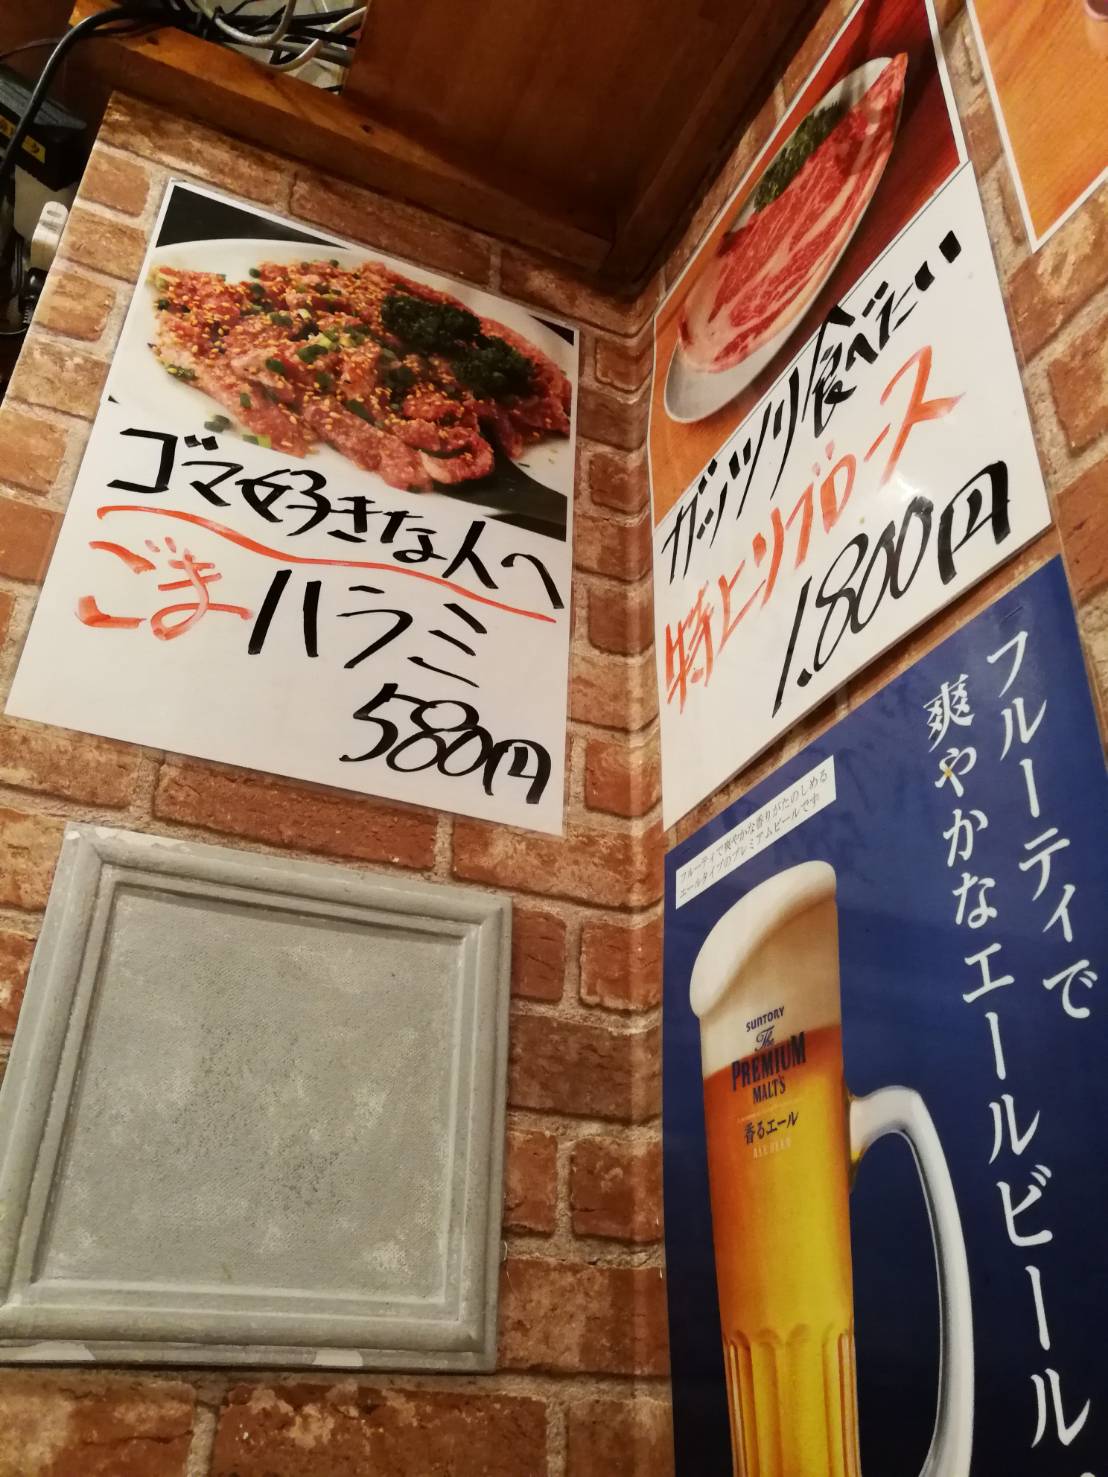 ゴマ好きな人へ
ごまハラミ
580円
ガッツリ食べたい
特上リブロース
1.800円
フルーティで
爽やかなエールビール
フルーティで爽やかな香りがたのしめる
エールタイプのプレミアムビールです
SUNTORY
The
PREMIUM
MALT'S
香るエール
ALE BEER